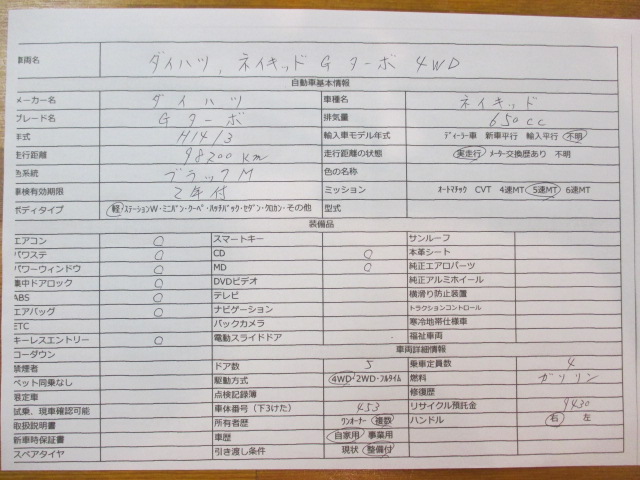 車両名 ダイハツ、ネイキッド G ターボ 4WD
自動車基本情報
メーカー名 ダイハツ 車種名 ネイキッド
グレード名 G ターボ 排気量 650cc
年式 H14/3 輸入車モデル年式 ディーラー車 新車平行 輸入平行 不明
走行距離 98200km 走行距離の状態 実走行 メーター交換歴あり 不明
色系統 ブラックM 色の名称
車検有効期限 2年付 ミッション オートマチック CVT 4速MT 5速MT 6速MT
ボディタイプ 軽・ステーションW・ミニバン・クーペ・ハッチバック・セダン・クロカン・その他 型式
装備品
エアコン ○ スマートキー サンルーフ
パワステ ○ CD ○ 本革シート
パワーウィンドウ ○ MD ○ 純正エアロパーツ
集中ドアロック ○ DVDビデオ 純正アルミホイール
ABS ○ テレビ 横滑り防止装置
エアバッグ ○ ナビゲーション トラクションコントロール
ETC バックカメラ 寒冷地帯仕様車
キーレスエントリー ○ 電動スライドドア 福祉車両
ローダウン 車両詳細情報
禁煙者 ドア数 5 乗車定員数 4
ペット同乗なし 駆動方式 4WD・2WD・フルタイム 燃料 ガソリン
限定車 点検記録簿 修復歴
試乗、現車確認可能 車体番号（下3けた） 453 リサイクル預託金 9430
取扱説明書 所有者歴 ワンオーナー 複数 ハンドル 右 左
新車時保証書 車歴 自家用 事業用
スペアタイヤ 引き渡し条件 現状 整備付